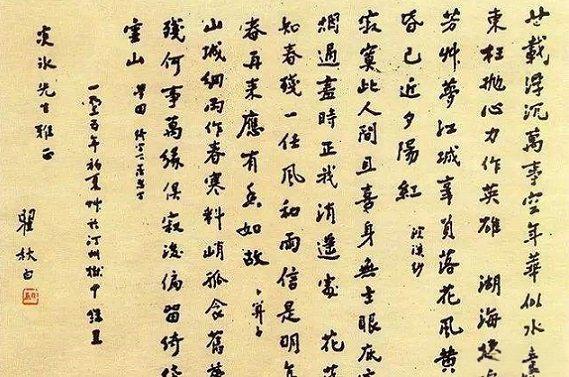 廿載浮沉萬事空年華似水
東枉抛心力作英雄 湖海棲
芳艸夢江城辜負落花風黄
昏已近夕陽紅 浣溪紗
寂寞此人間且喜身無主眼底
烟過盡時正我逍遥處 花
知春殘一任風和雨信是明年
春再來應有香如故 卜算子
山城細雨作春寒料峭孤衾舊
殘何事萬緣俱寂後偏留綺
雲山
一九三五年初夏艸於汀州獄中錄呈
炎冰先生雅正
瞿秋白